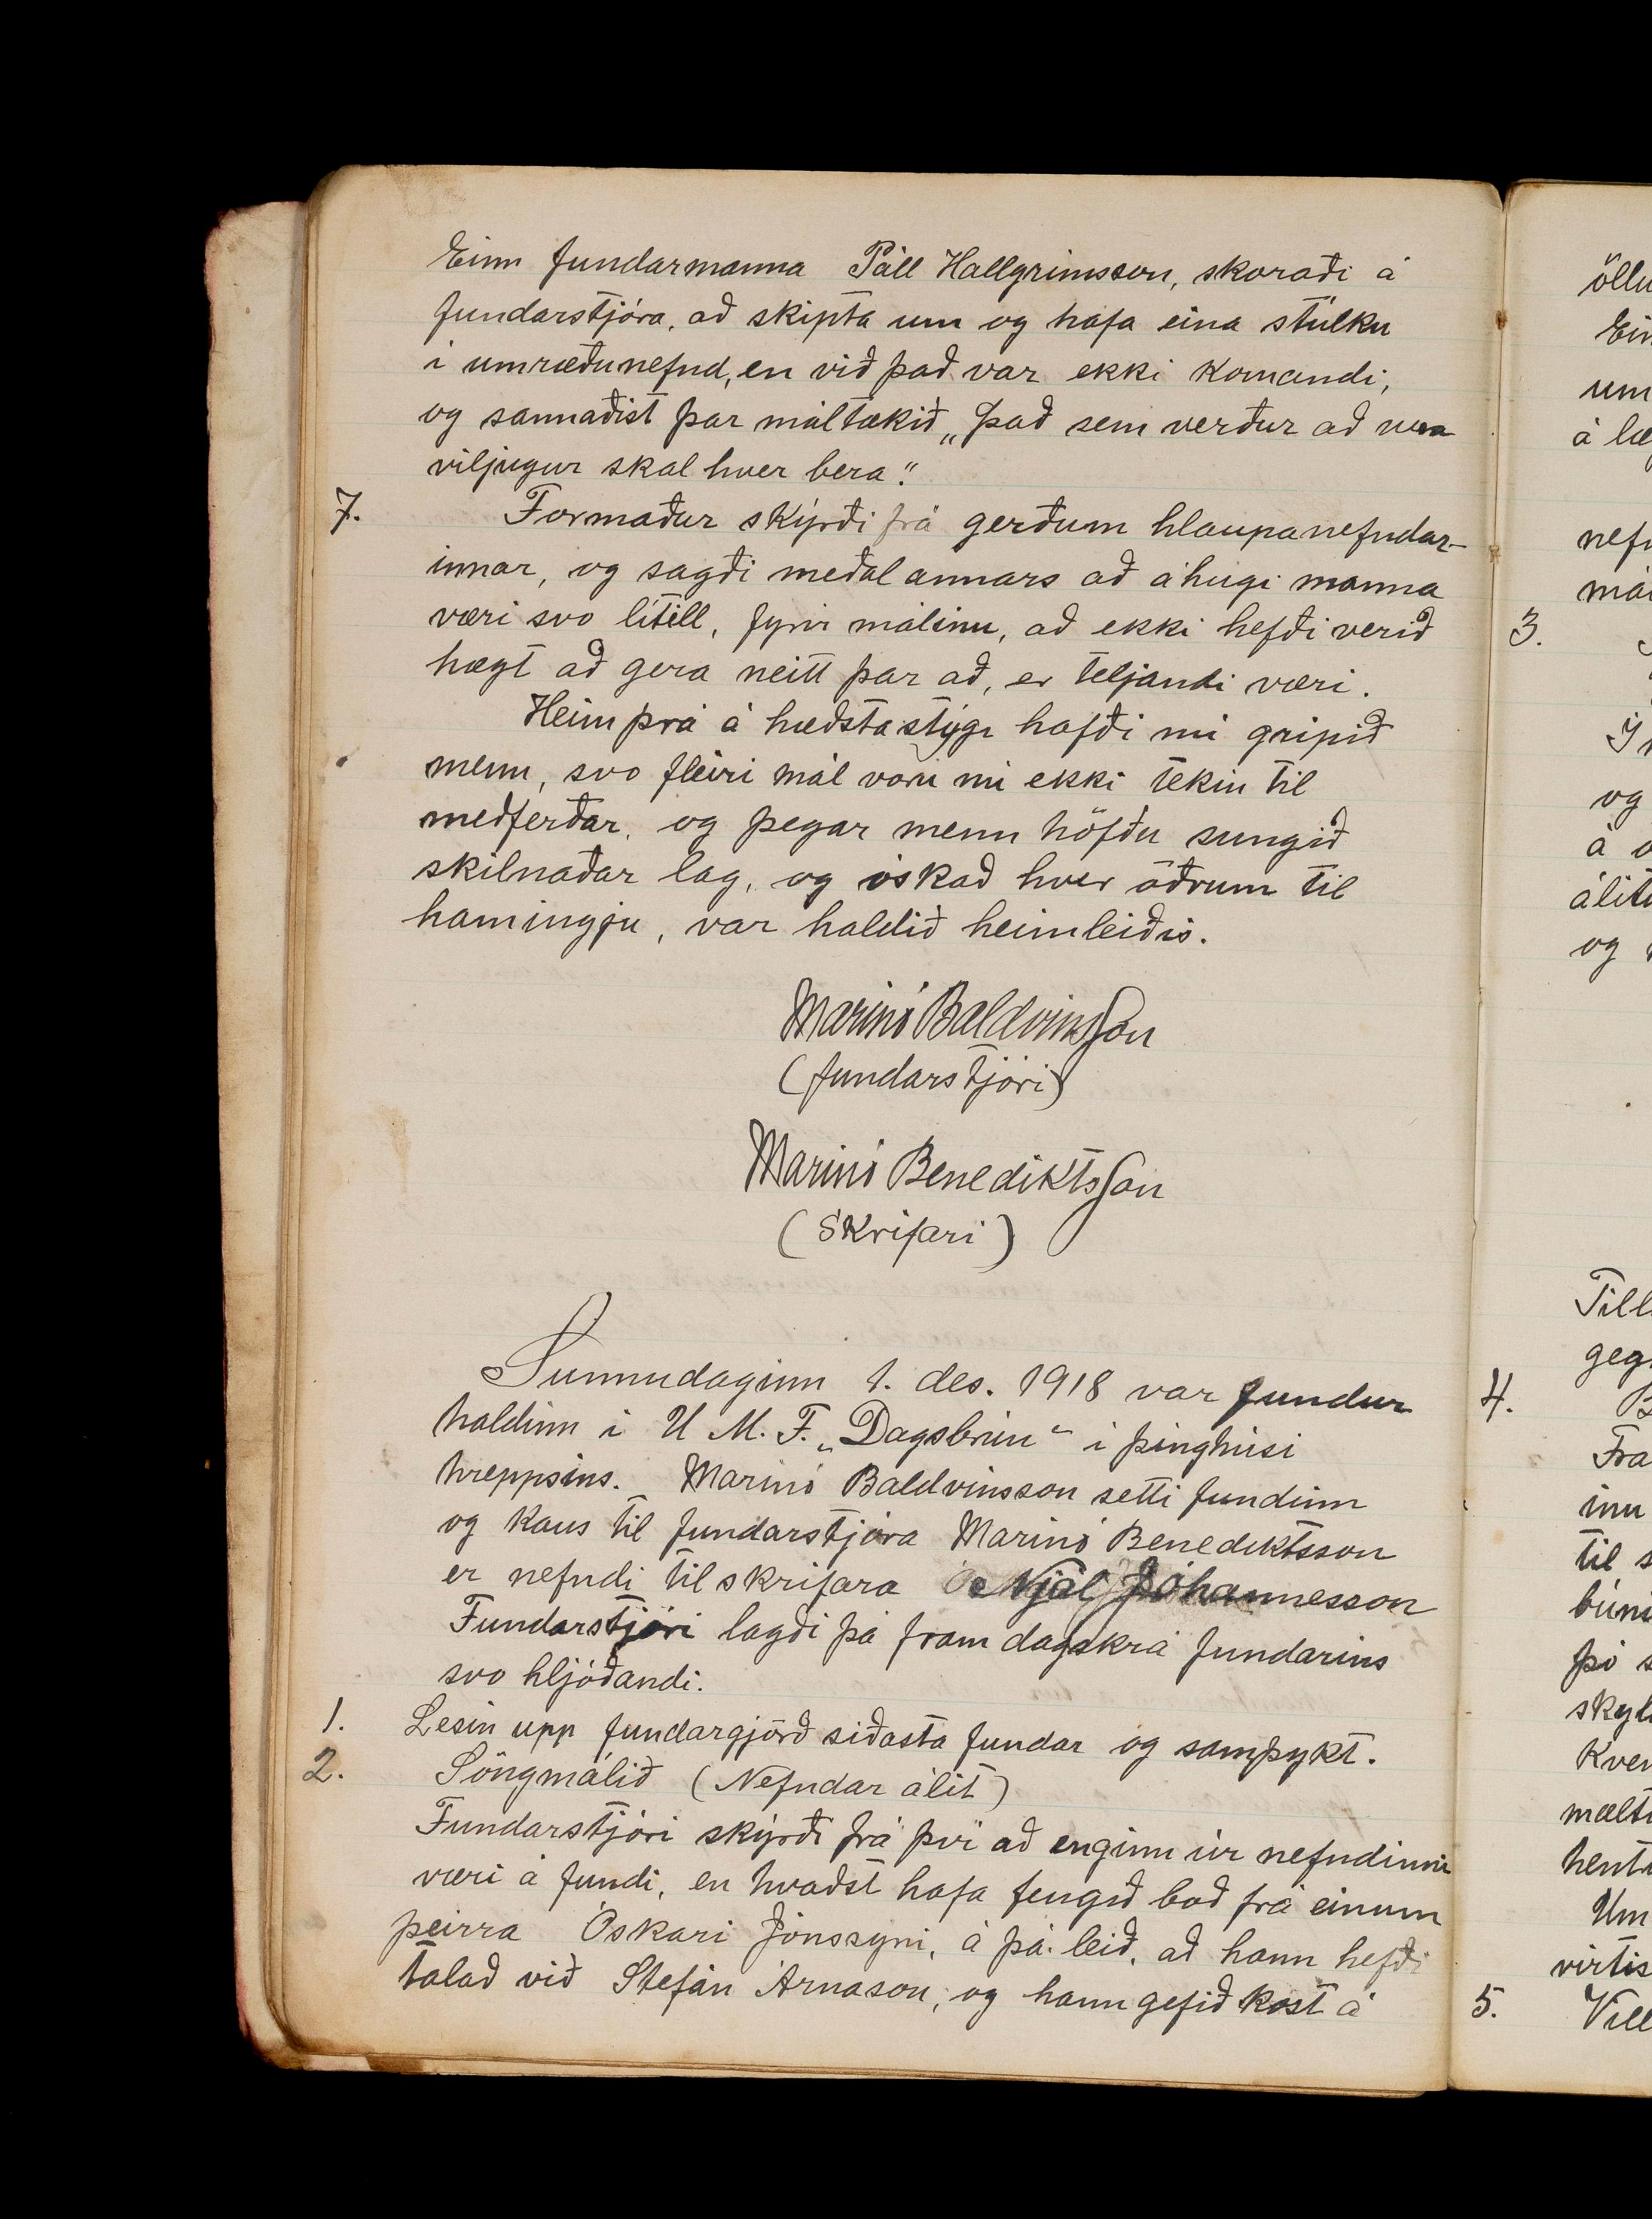 Einn fundarmanna Páll Hallgrimsson, skoraði á
fundarstjóra, að skipta um og hafa eina stúlku
i umræðunefnd, en við það var ekki komandi,
og sannaðist þar máltækið „Það sem verður að vera
viljugur skal hver bera."
7. Formaður skýrði frá gerðum hlaupanefndar-
innar, og sagði meðal annars að áhugi manna
væri svo lítill, fyrir málinu, að ekki hefði verið
hægt að gera neitt þar að, er teljandi væri.
Heimþrá á hæðsta stýgi hafði nú gripið
menn, svo fleiri mál voru nú ekki tekin til
meðferðar, og þegar menn höfðu sungið
skilnaðar lag, og óskað hver öðrum til
hamingju, var haldið heimleiðis.
Marinó Baldvinsson
(fundarstjóri)
Marinó Benediktsson
(Skrifari)
Sunnudaginn 1. des. 1918 var fundur
haldinn i U M. F. „Dagsbrún" i þinghúsi
hreppsins. Marinó Baldvinsson setti fundinn
og kaus til fundarstjóra Marinó Benediktsson
er nefndi til skrifara Njál Jóhannesson
Fundarstjóri lagði þá fram dagskrá fundarins
svo hljóðandi.
1. Lesin upp fundargjörð siðasta fundar og samþykt.
2. Söngmálið (Nefndar álit)
Fundarstjóri skýrði frá því að enginn úr nefndinni
væri á fundi, en kvaðst hafa fengið boð frá einum
þeirra Óskari Jónssyni, á þá leið, að hann hefði
talað við Stefán Árnason, og hann gefið kost á
öllu
Ein
um
á læ
nefn
mál
3.
og
á
álit
og
Till
geg
4.
Fra
inu
til s
búni
þó s
skyl
kven
mælt
hent
Um
virtis
5. Vill